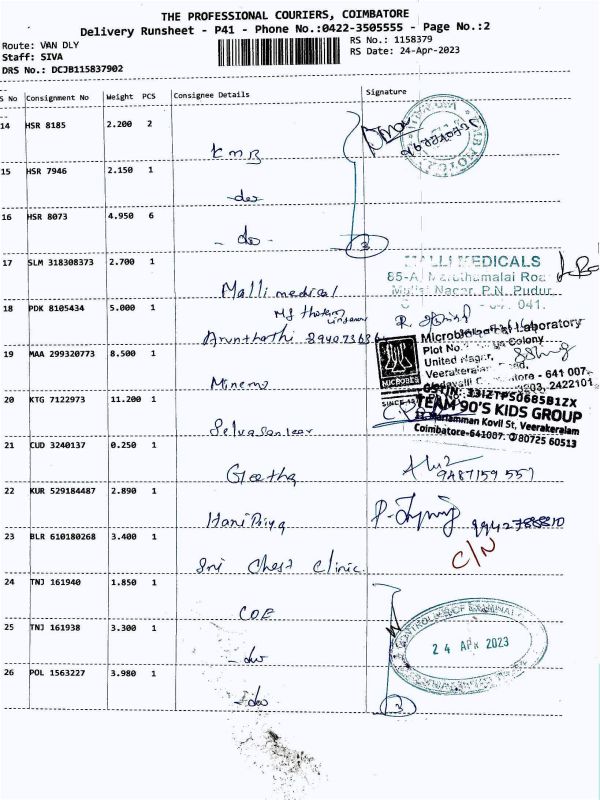 THE PROFESSIONAL COURIERS, COIMBATORE
Delivery Runsheet - P41 - Phone No.:0422-3505555 - Page No.:2
Route: VAN DLY
Staff: SIVA
DRS No.: DCJB115837902
RS No.: 1158379
RS Date: 24-Apr-2023
S No Consignment No Weight PCS Consignee Details Signature
14 HSR 8185 2.200 2
KMB
15 HSR 7946 2.150 1
- do -
16 HSR 8073 4.950 6
- do - 3
17 SLM 318308373 2.700 1
MALLI MEDICALS
85-A, Maruthamalai Roa
Nagar, P.N. Pudur
041.
Malli medical
18 PDK 8105434 5.000 1
Arunthathi
19 MAA 299320773 8.500 1
Microbiological Laboratory
Plot No. Colony
United Nagar,
Veerakeralam
- 641 007
2422101
MICROBES
SINCE
Minemo
20 KTG 7122973 11.200 1
GSTIN: 33IZTPS0685B1ZX
TEAM 90'S KIDS GROUP
Mariamman Kovil St, Veerakeralam
Coimbatore-641007. 80725 60513
21 CUD 3240137 0.250 1
Geetha
9487159557
22 KUR 529184487 2.890 1
Hari Priya
23 BLR 610180268 3.400 1
Sri Chest Clinic
C/N
24 TNJ 161940 1.850 1
COE
CONTROLLER OF EXAMINAT
24 APR 2023
25 TNJ 161938 3.300 1
- do -
26 POL 1563227 3.980 1
- do - 3